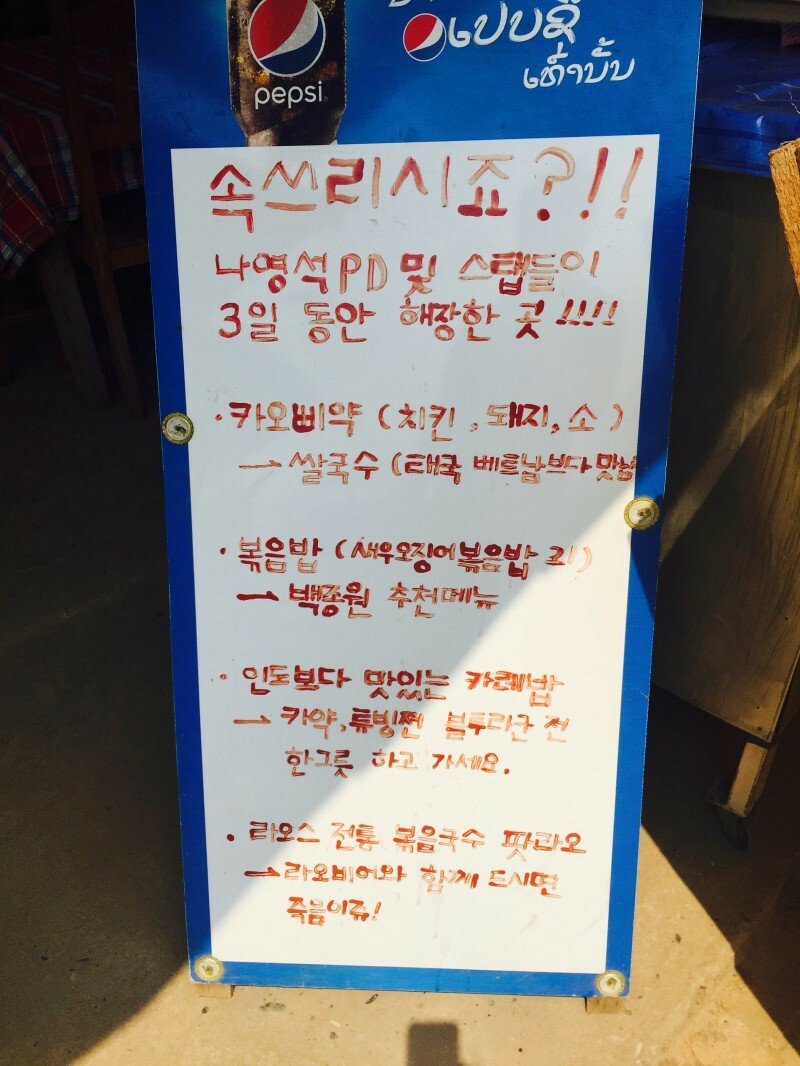 pepsi
ເປບຊີ
ເທົ່ານັ້ນ
속쓰리시죠?!!
나영석PD 및 스탭들이
3일 동안 해장한 곳 !!!!
· 카오삐약 (치킨, 돼지, 소)
→ 쌀국수 (태국 베트남보다 맛남
· 볶음밥 (새우오징어볶음밥
→ 백종원 추천메뉴
· 인도보다 맛있는 카레밥
→ 카약, 튜빙쩐 블루라군 전
한그릇 하고 가세요.
· 라오스 전통 볶음국수 팟라오
→ 라오비어와 함께 드시면
죽음이쥬!